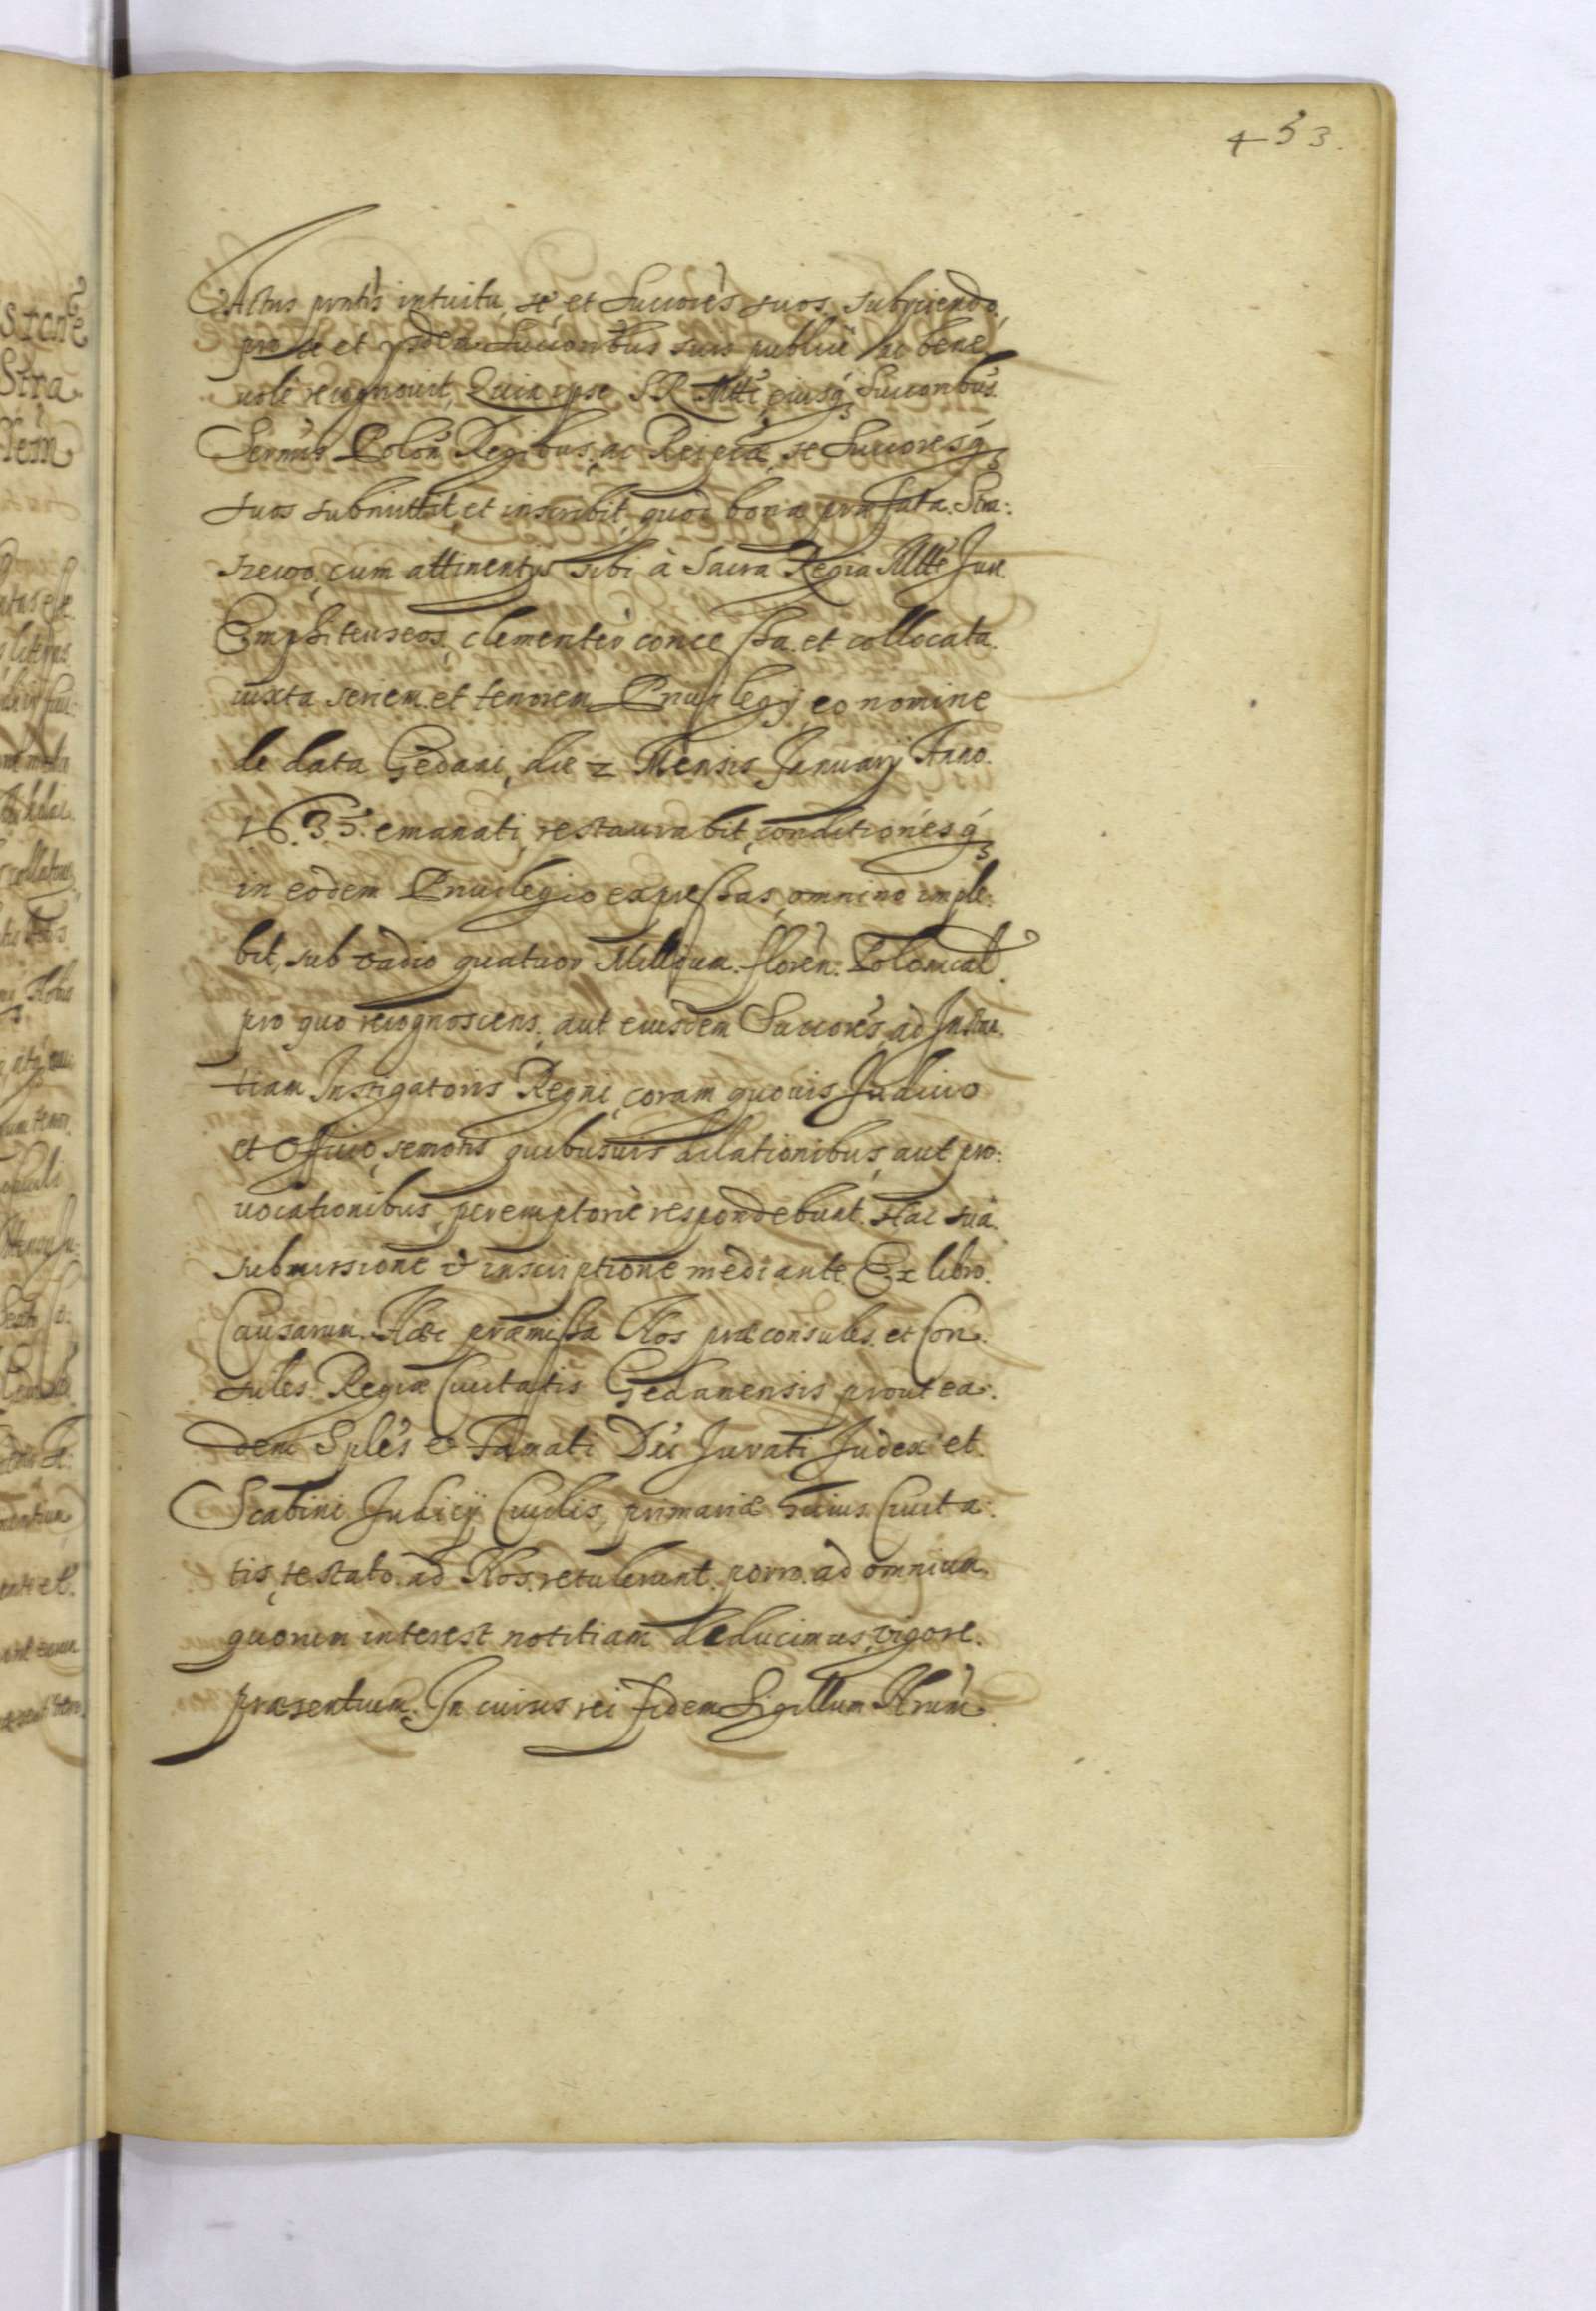 453.
Actus pñtis intuitu, se et Succores suos subijciendo,
pro se et ijsdem Succoribus suis publice ac bene
uole recognouit, Quia ipse S R Mtti eiusq3 Succoribus
Sermis Polon Regibus, ac Reipcæ se Succoresq3
suos submittit, et inscribit, quod bona præfata Stra:
szewo, cum attinentijs sibi à Sacra Regia Mtte Jure
Emphiteuseos, clementer concessa et collocata
iuxta seriem et tenorem Priuilegij eo nomine
de data Gedani, die 2 Mensis Januarij Anno
1635. emanati, restaurabit, conditionesq3
in eodem Priuilegio expressas, omnino imple:
bit, sub vadio quatuor Millium floren: Polonical
pro quo recognoscens, aut eiusdem Succores, ad Instan
tiam Instigatoris Regni, coram quouis Judicio
et Officio, semotis quibusuis dilationibus, aut pro:
uocationibus, peremptorie respondebunt. Hac sua
submissione & inscriptione mediante. Ex libro
Causarum. Hæc præmissa Nos præconsules et Con
sules Regiæ Ciuitatis Gedanensis prout ea:
dem Sples & Famati Dñi Jurati Judex et
Scabini Judicij Ciuilis, primariæ huius Ciuita:
tis, testato ad Nos retulerunt, porro ad omnium
quorum interest notitiam deducimus, vigore
præsentium. In cuius rei fidem Sigillum Nrum